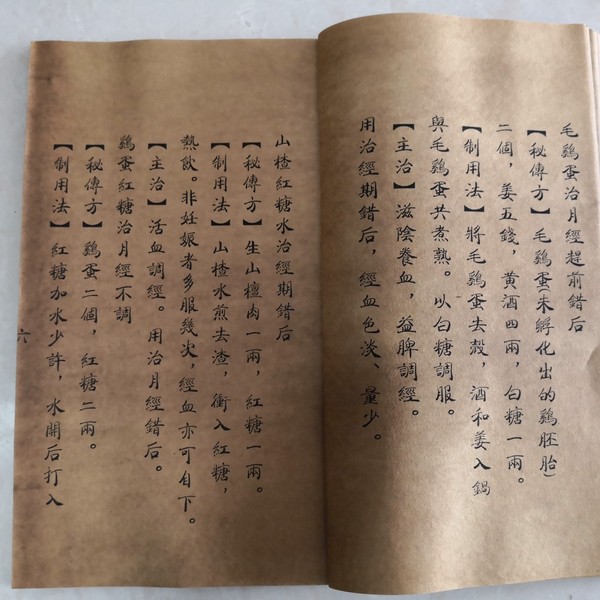 毛鷄蛋治月經趕前錯后
【秘傳方】毛鷄蛋(未孵化出的鷄胚胎)
二個，姜五錢，黄酒四兩，白糖一兩。
【制用法】將毛鷄蛋去殼，酒和姜入鍋
與毛鷄蛋共煮熟。以白糖調服。
【主治】滋陰養血，益脾調經。
用治經期錯后，經血色淡、量少。
山楂紅糖水治經期錯后
【秘傳方】生山檀肉一兩，紅糖一兩。
【制用法】山楂水煎去渣，衝入紅糖，
熱飲。非妊娠者多服幾次，經血亦可自下。
【主治】活血調經。用治月經錯后。
鷄蛋紅糖治月經不調
【秘傳方】鷄蛋二個，紅糖二兩。
【制用法】紅糖加水少許，水開后打入
六